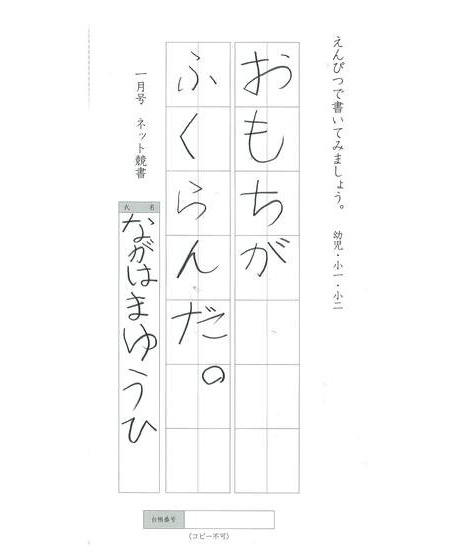 えんぴつで書いてみましょう。 幼児・小一・小二
おもちが
ふくらんだ。
一月号 ネット競書
氏名
ながはまゆうひ
台帳番号
(コピー不可)